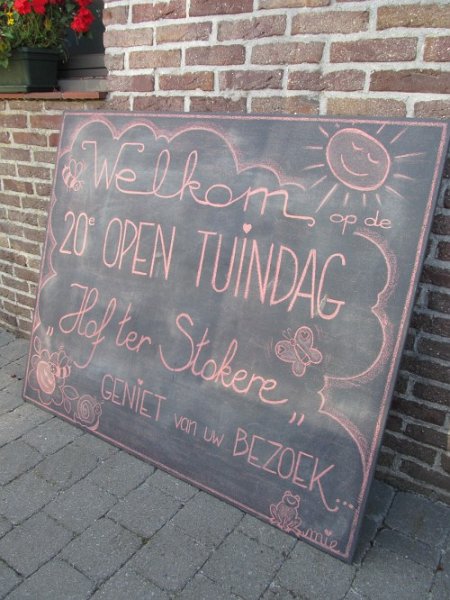 Welkom op de
20e OPEN TUINDAG
„Hof ter Stokere„
GENIET van uw BEZOEK...
mie